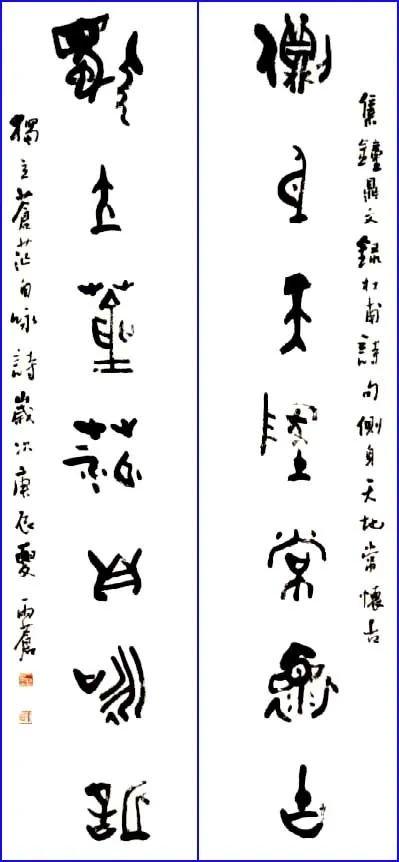 集鐘鼎文録杜甫詩句側身天地常懷古
側身天地常懷古
獨立蒼茫自咏詩
獨立蒼茫自咏詩歲次庚辰夏雨蒼